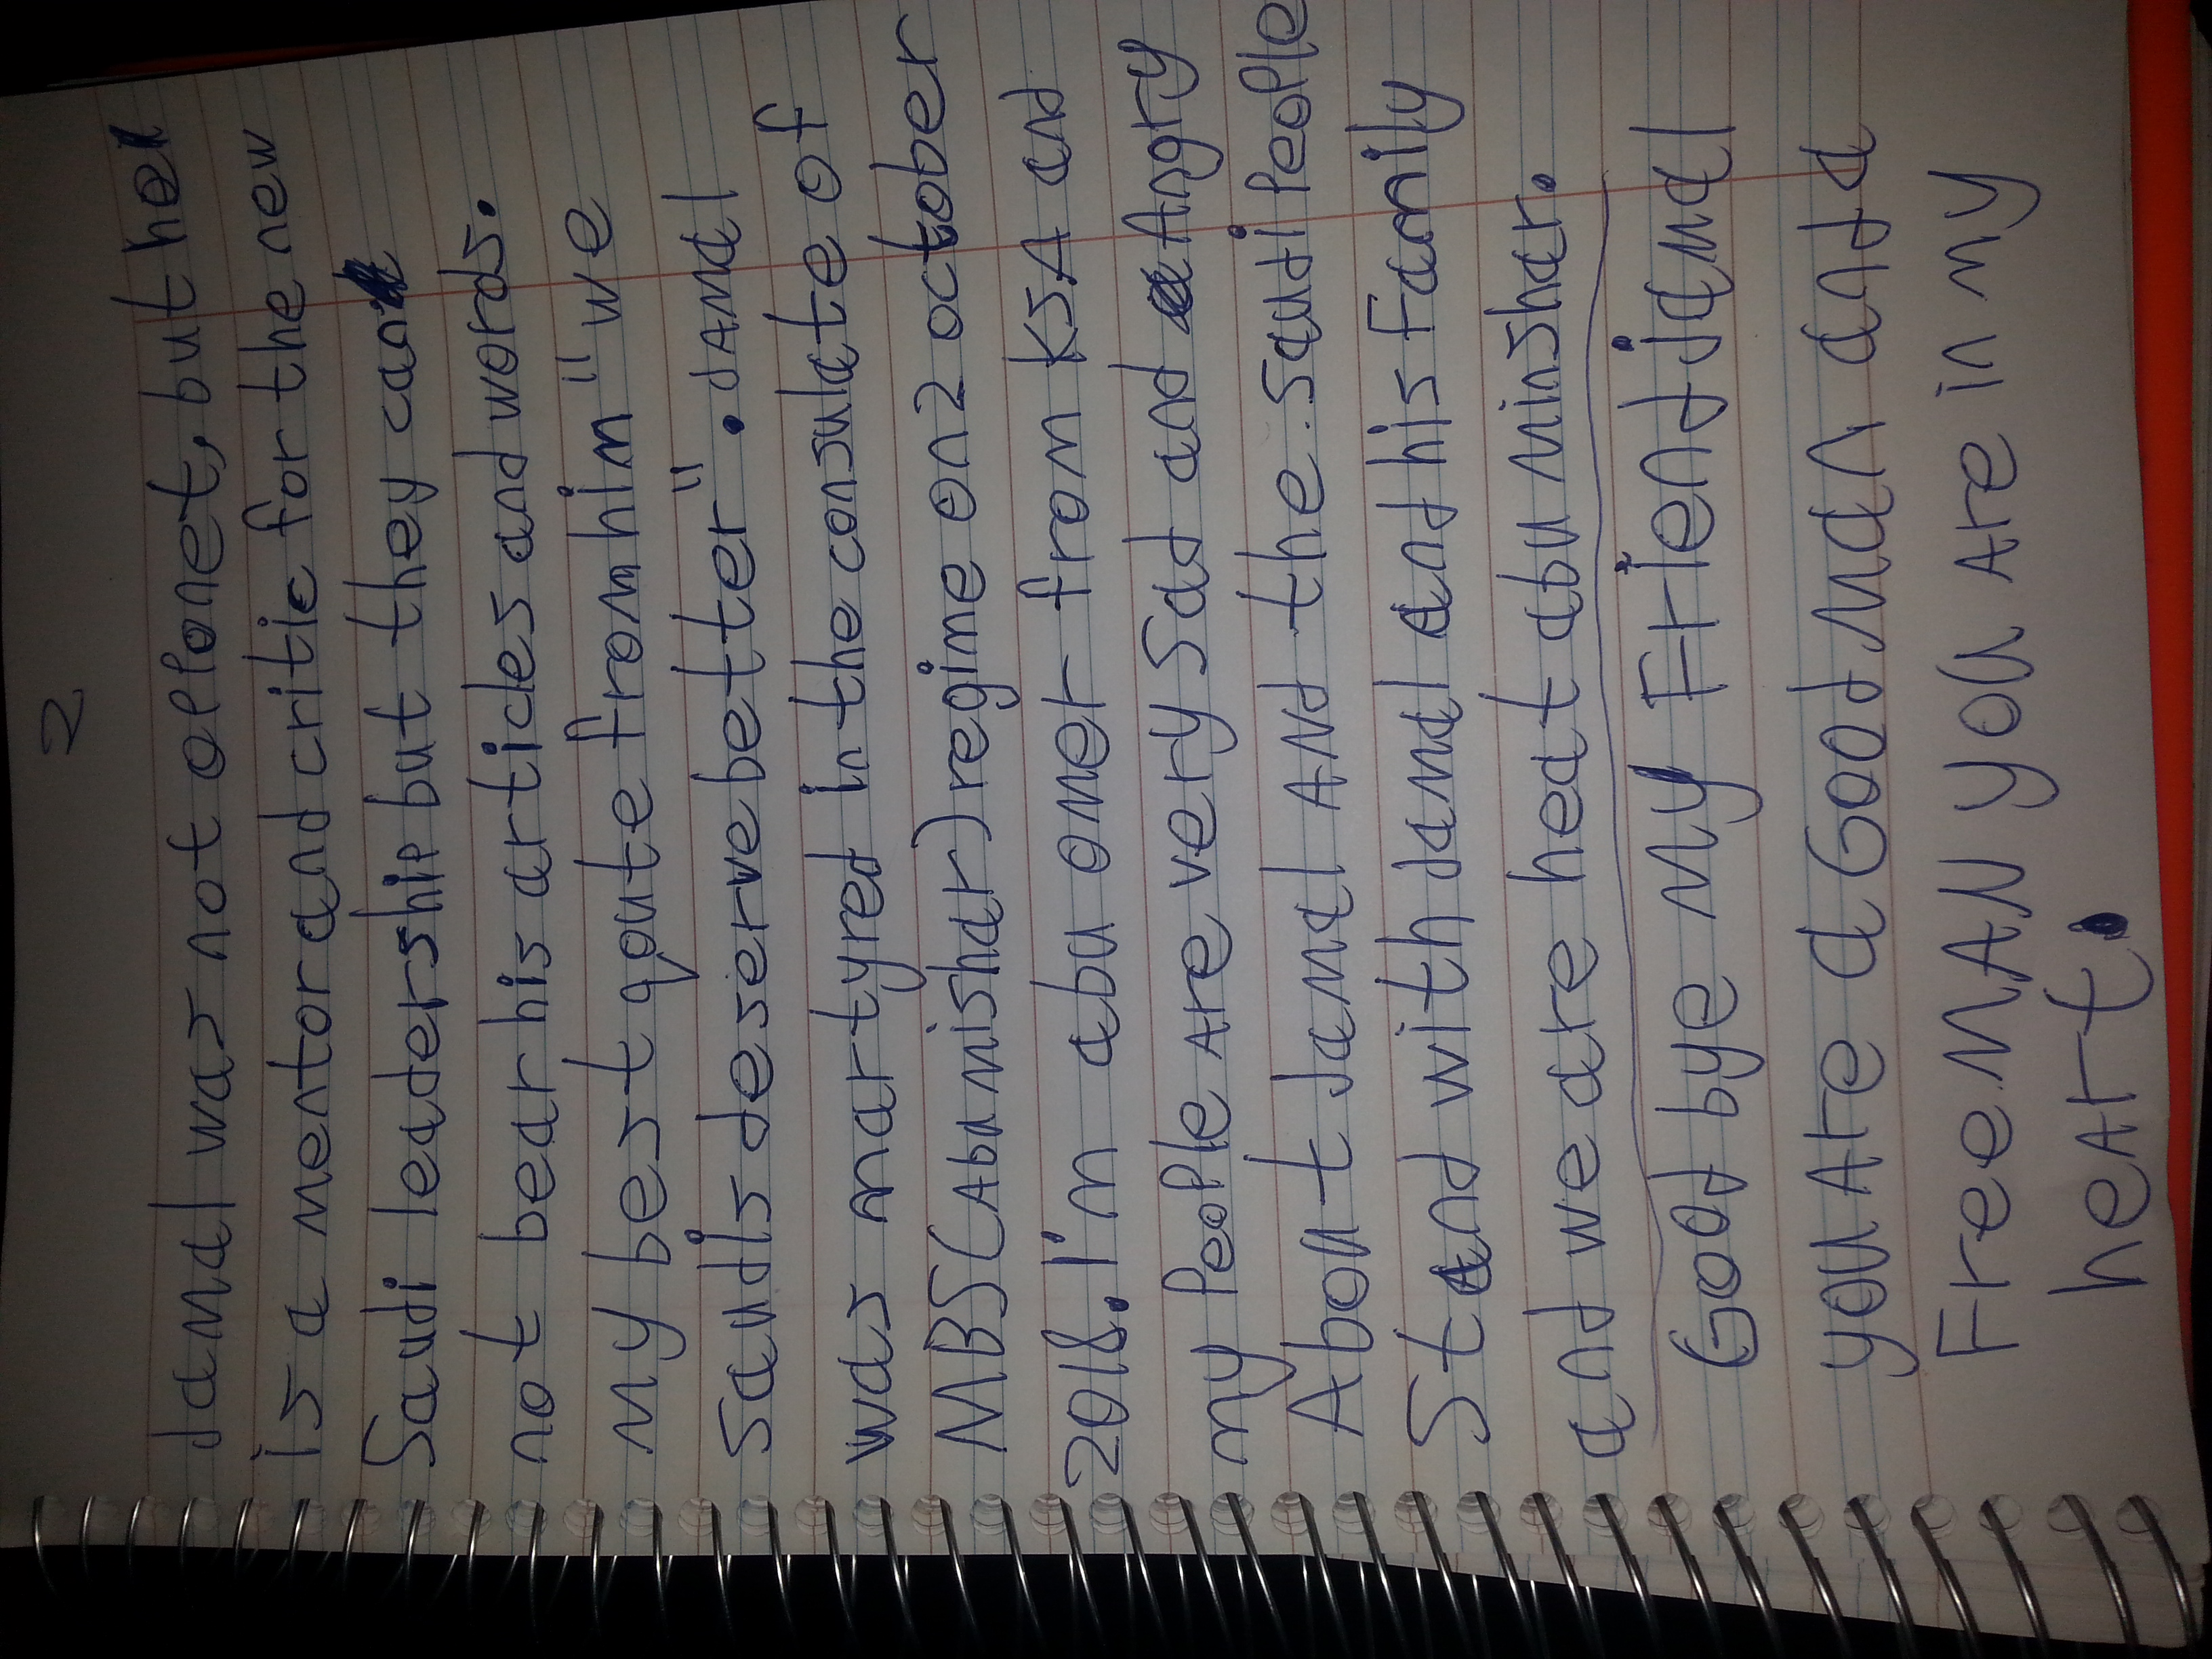 2
Jamal was not opponet, but he
is a mentor and critic for the new
Saudi leadership but they can
not bear his articles and words.
my best qoute from him "we
saudis deserve better". JAMal
was martyred in the consulate of
MBS (Abu mishar) regime on 2 october
2018. I'm abu omer from KSA and
my People Are very sad and Angry
About Jamal ANd the saudi People
Stand with Jamal and his Family
and we are heat abu Minshar.
Good bye My Friend jamal
you Are a Good Man and a
Free MAN you Are in my
heArt.